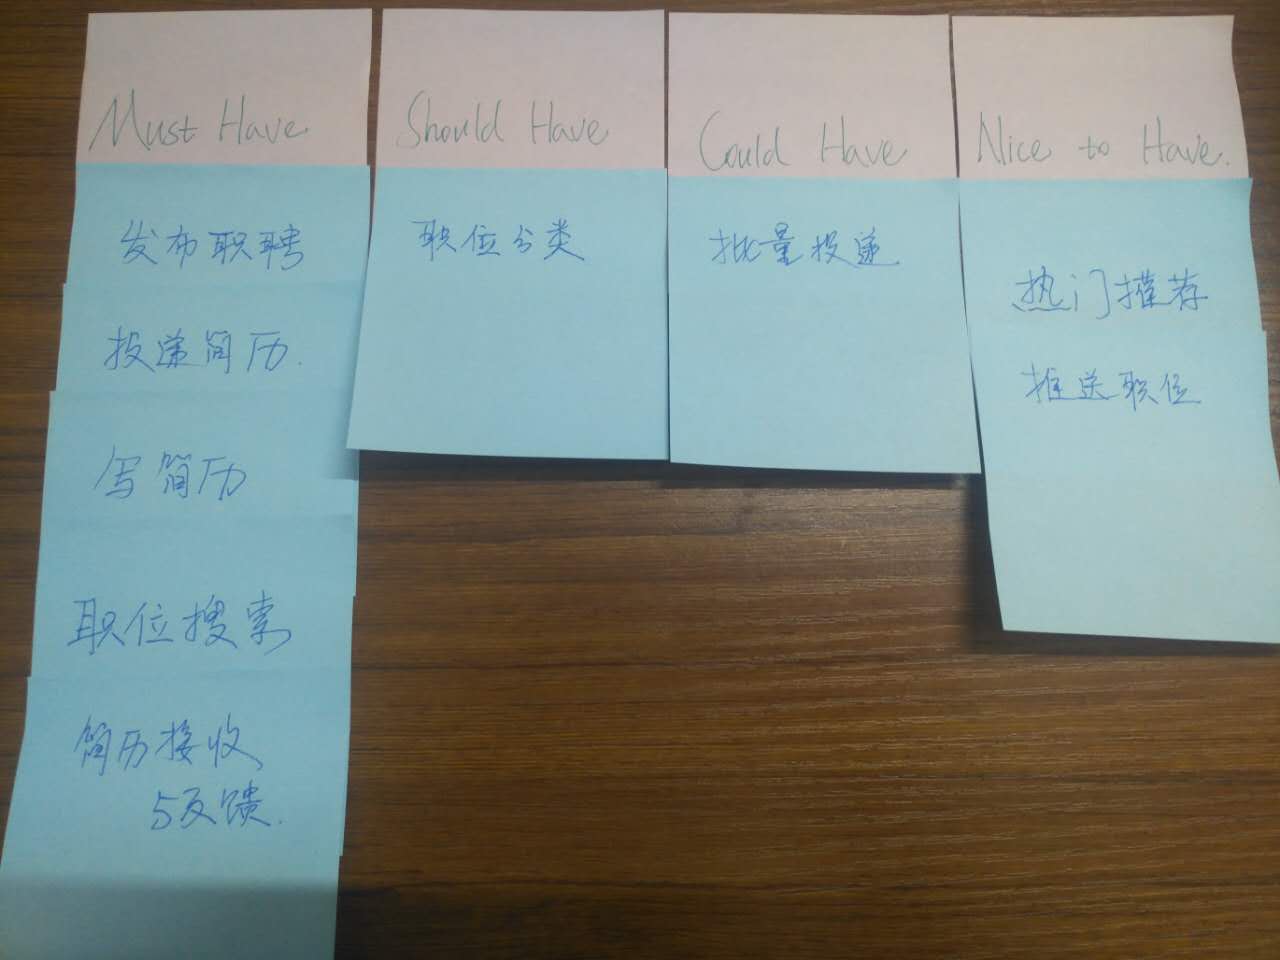 Must Have
发布职聘
投递简历.
写简历
职位搜索
简历接收
与反馈.
Should Have
职位分类
Could Have
批量投递
Nice to Have.
热门推荐
推送职位